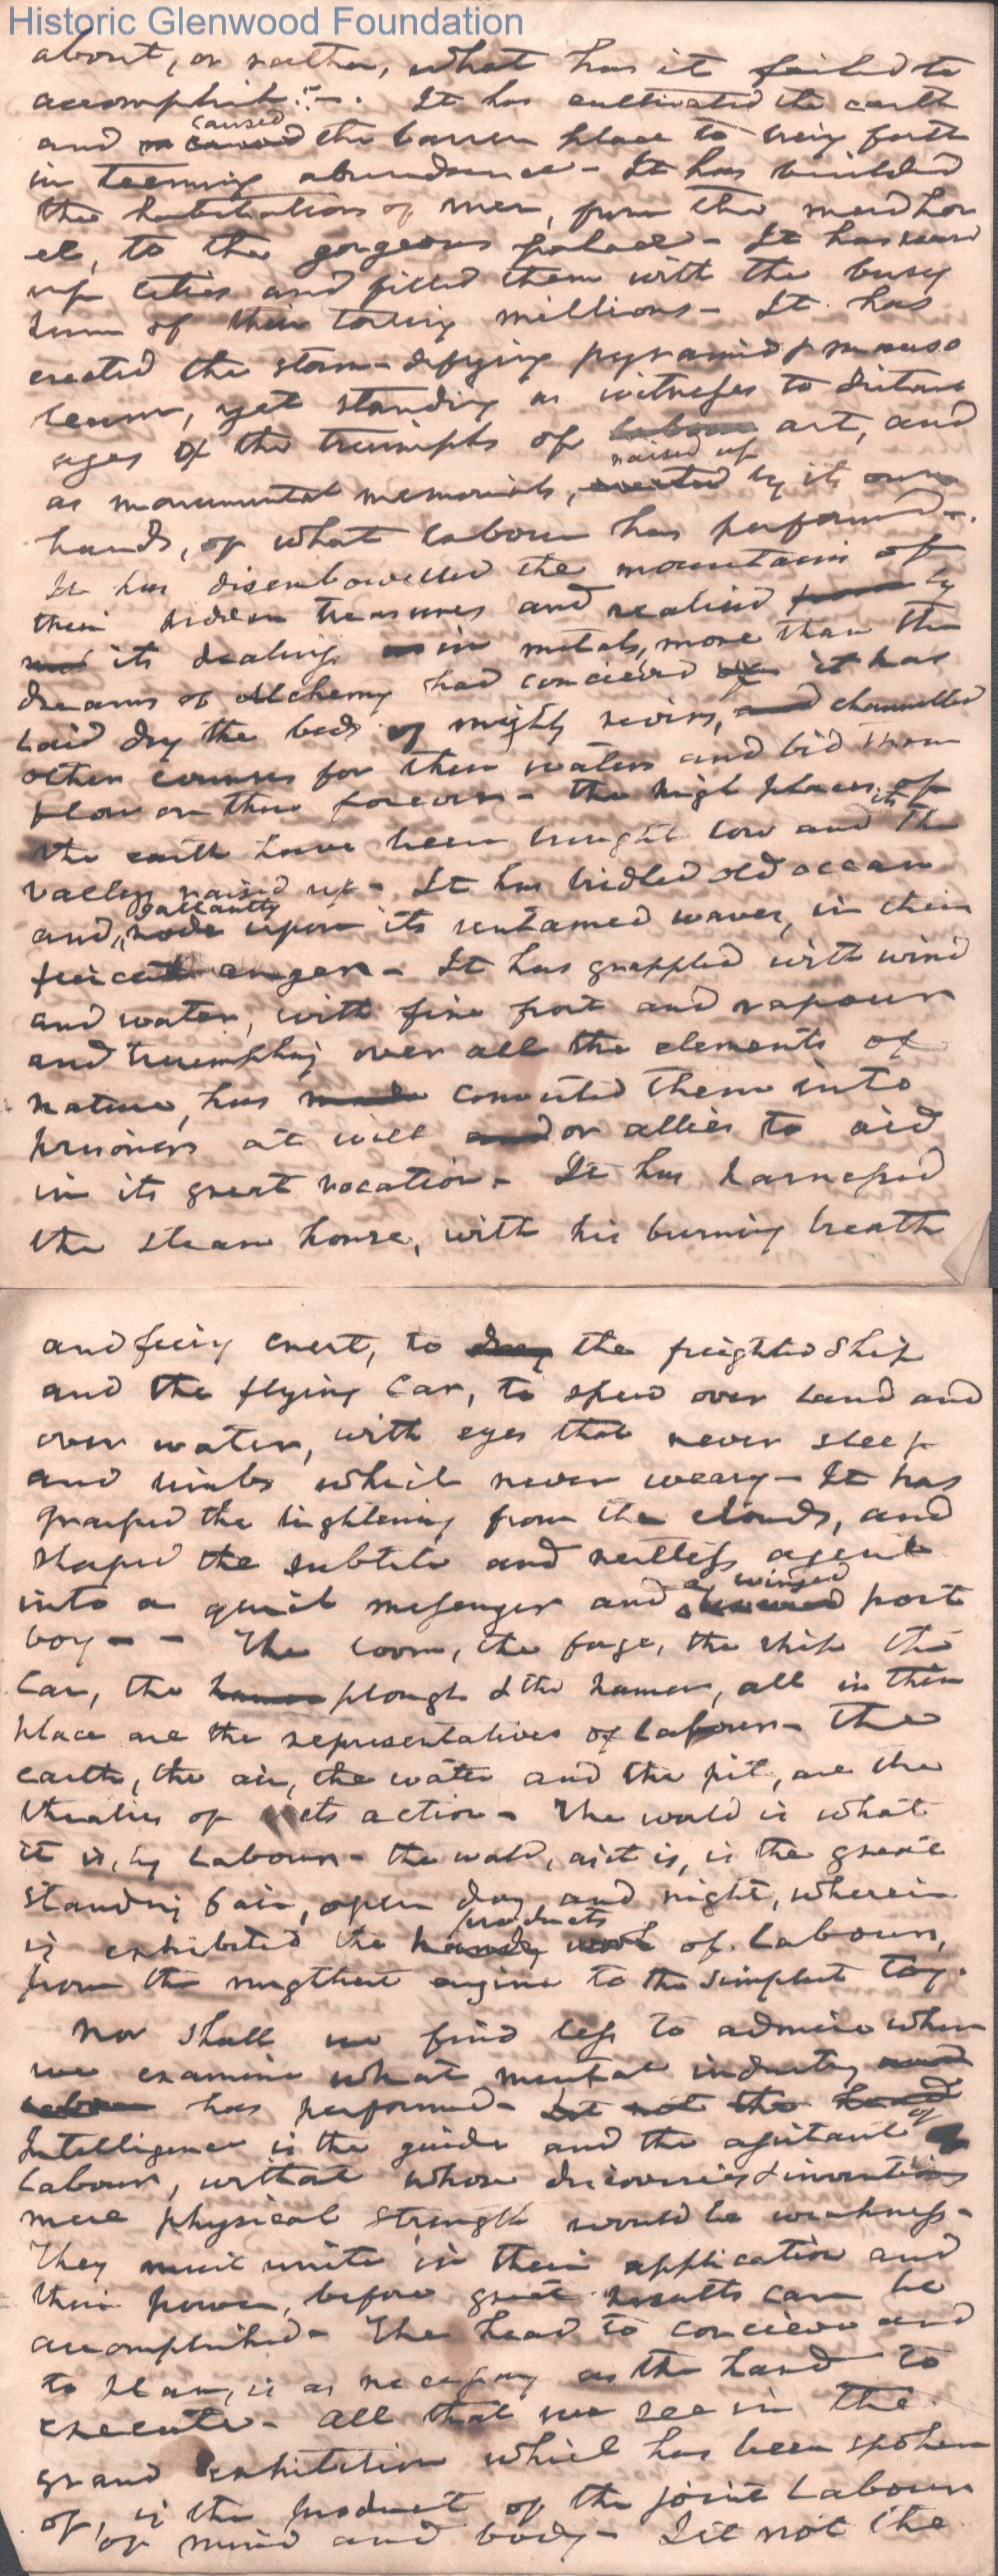 Historic Glenwood Foundation
about, or rather, what has it failed to
accomplish? -. It has cultivated the earth
and caused the barren place to bring forth
in teeming abundance - It has builded
the habitations of men, from the mud hov
el, to the gorgeous palace - It has reared
up cities and filled them with the busy
hum of their toiling millions - It has
erected the storm-defying pyramid & mauso
leum, yet standing as witnesses to distant
ages of the triumphs of labour art, and
raised up
as monumental memorials, erected by its own
hands, of what labour has performed -.
It has disembowelled the mountains of
their hidden treasures and realised from by
its dealings in metals, more than the
dreams of Alchemy had concieved it has
laid dry the beds of mighty rivers, and channelled
other courses for their waters and bid them
flow on thus forever - the high places of
the earth have been brought low and its the
valleys raised up - It has bridled old ocean
gallantly
and, rode upon its untamed waves, in their
fiercest anger - It has grappled with wind
and water, with fire frost and vapour
and triumphing over all the elements of
nature, has made converted them into
prisoners at will and or allies to aid
in its great vocation - It has harnessed
the steam horse, with his burning breath
and fiery crest, to drag the freighted ship
and the flying car, to speed over land and
over water, with eyes that never sleep
and limbs which never weary - It has
grasped the lightening from the clouds, and
shaped the subtile and restless agent
winged
into a quick messenger and a post
boy - - The loom, the forge, the ship the
car, the plough & the hammer, all in their
place are the representatives of labour - The
earth, the air, the water and the pit, are the
theatres of its action - The world is what
it is, by Labour - the world, as it is, is the great
standing fair, open day and night, wherein
products
is exhibited the handy work of Labour,
from the mightiest engine to the simplest toy.
Nor shall we find less to admire when
we examine what mental industry and
labour has performed - but not the hand
Intelligence is the guide and the assistant of
Labour, without whose discoveries & inventions
mere physical strength would be weakness -
They must unite in their application and
their power, before great results can be
accomplished - The head to concieve and
to plan, is as necessary as the hand to
execute - All that we see in the
grand exhibition which has been spoken
of, is the product of the joint Labour
of mind and body - Is it not the